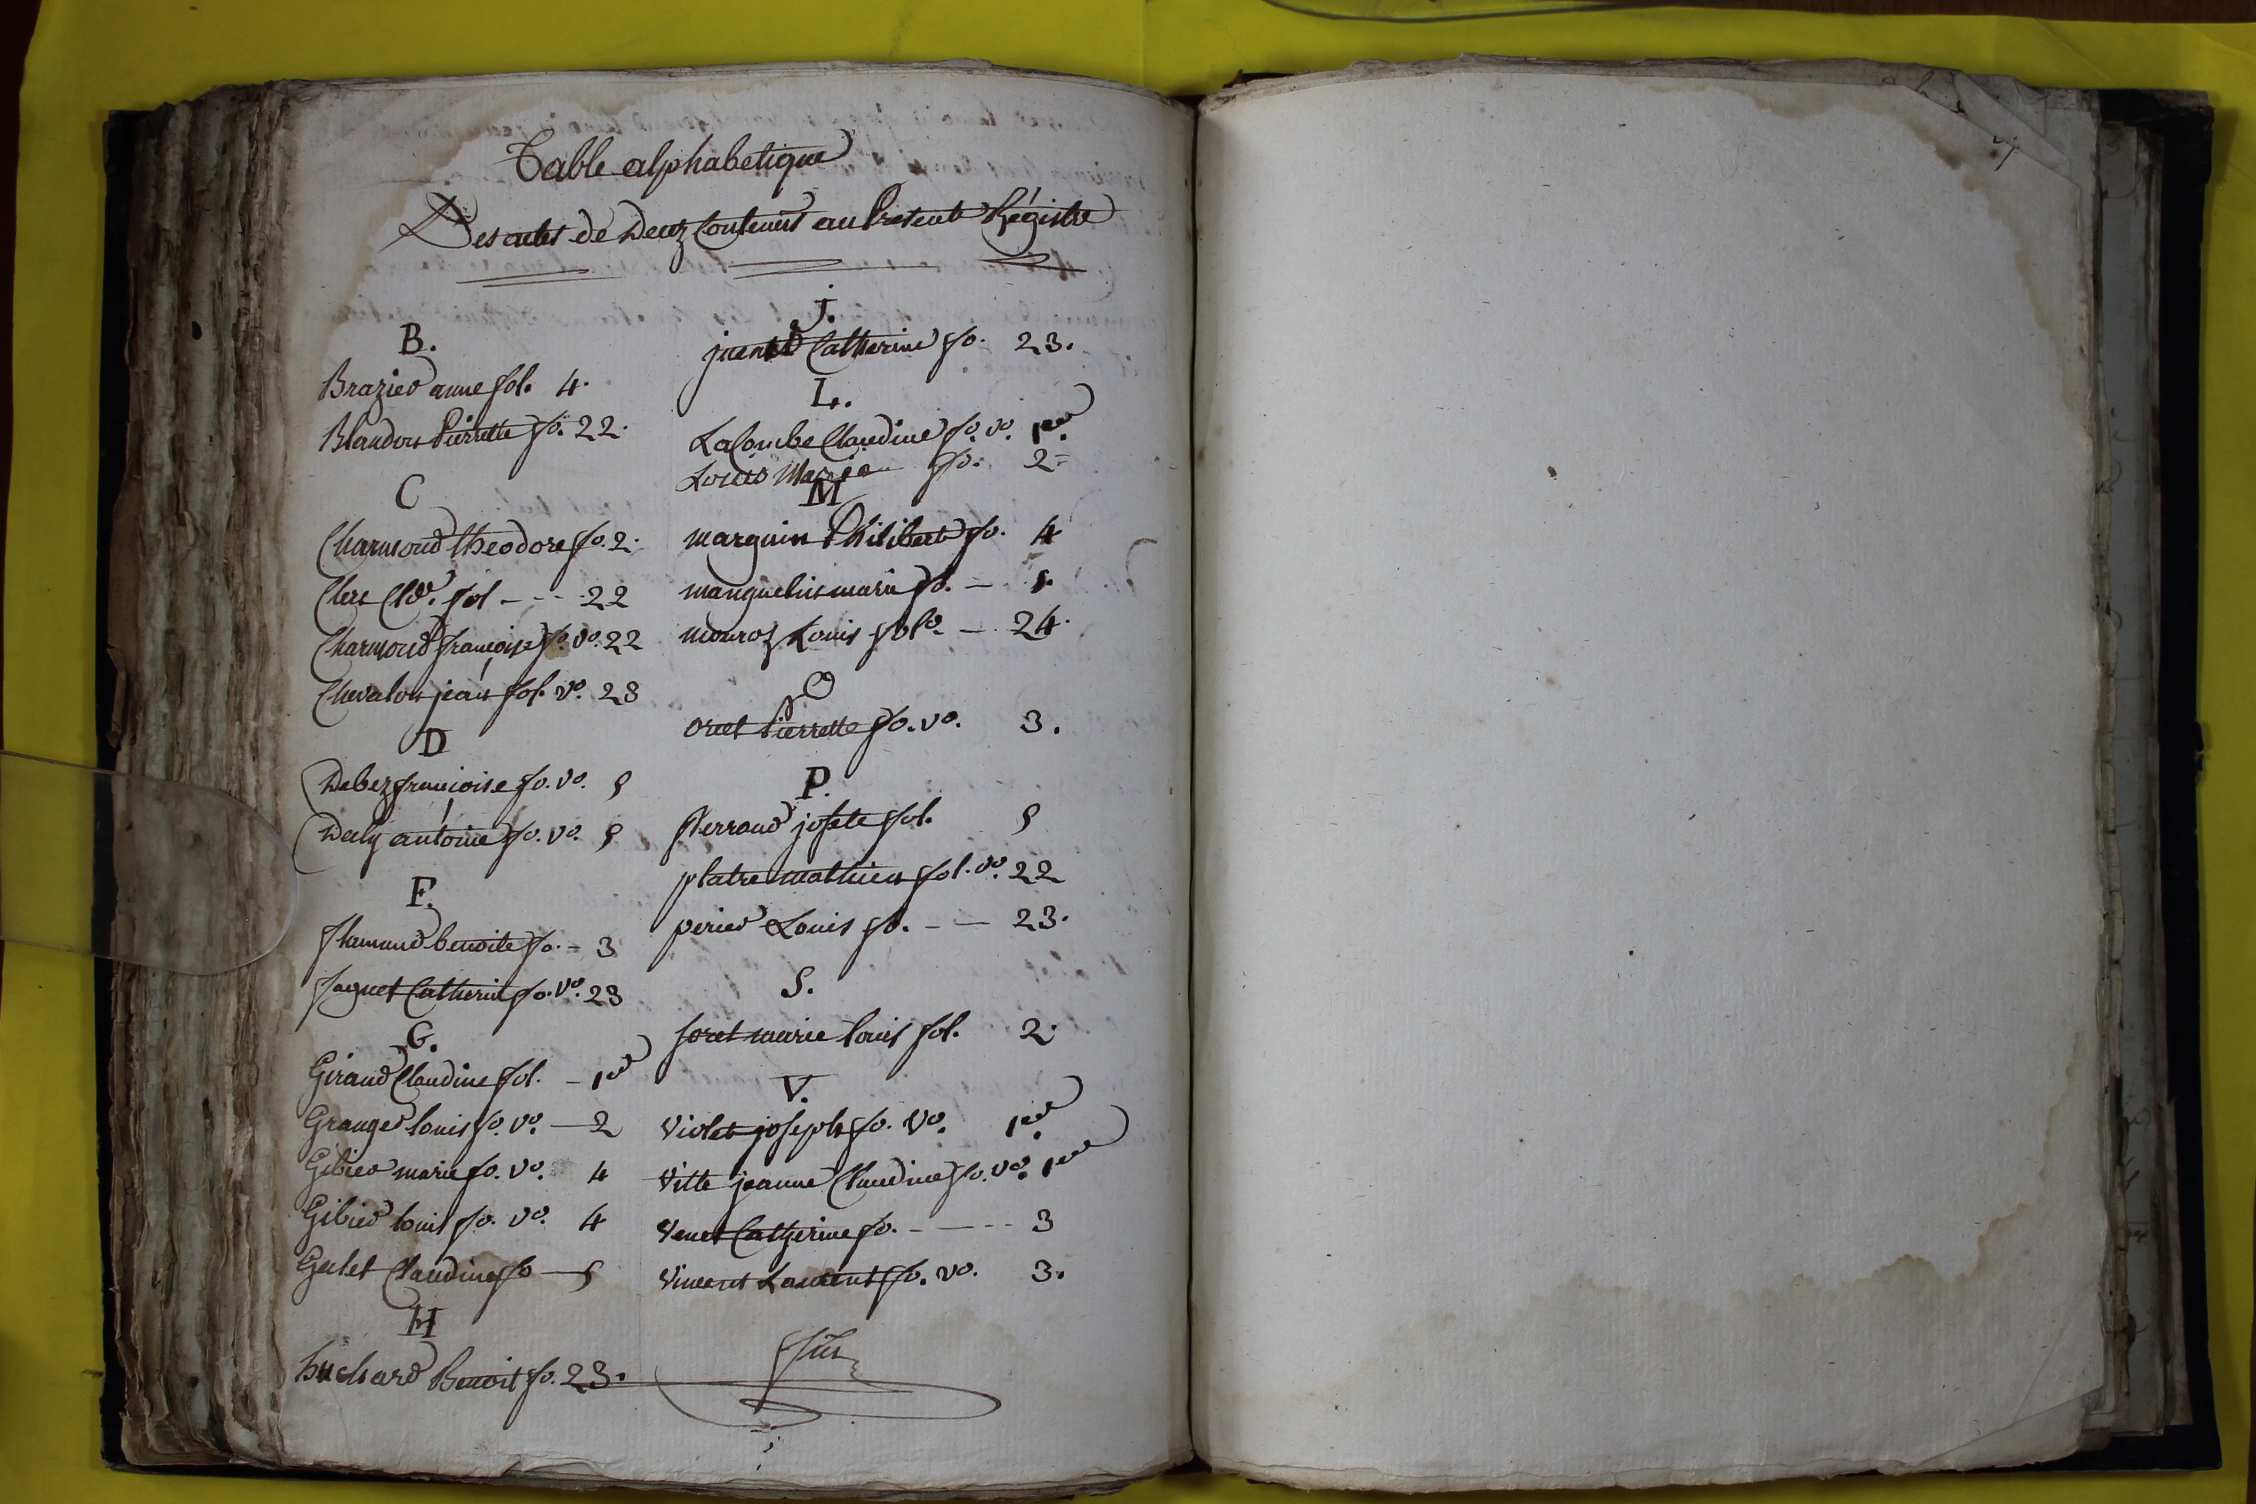 Table alphabetique
Des actes de Decez Contenus au Present Régistre
B.
Brazier anne fol. 4.
Blandon Pierrette fo. 22.
C
Charmond theodore fo. 2.
Clerc Cl. fol - - - 22
Charmond françoise fo. vo. 22
Chevalon jean fol. vo. 23
D
Debez françoise fo. vo. 5
Dely antoine fo. vo. 5
F.
flamand benoite fo. - 3
faguet Catherine fo. vo. 23
G.
Giraud Claudine fol. - 1er
Granger louis fo. vo. - 2
Gibier marie fo. vo. 4
Gibier louis fo. vo. 4
Gelet Claudine fo - 5
H
huchard Benoit fo. 23.
j.
Catherine fo. 23.
L.
LaCombe Claudine fo. vo. 1er
Louis Marie fo. 2
M
marguin Philibert fo. 4
manguelin marie fo. - 1.
monroz Louis folo - 24.
O
oret Pierrette fo. vo. 3.
P.
perraud josete fol. 5
platre mathieu fol. vo. 22
perier Louis fo. - - 23.
S.
soret marie louis fol. 2.
V.
Violet joseph fo. vo. 1er
Vitte jeanne Claudine fo. vo. 1er
Venet Catherine fo. - - - - 3
Vincent Laurent fo. vo. 3.